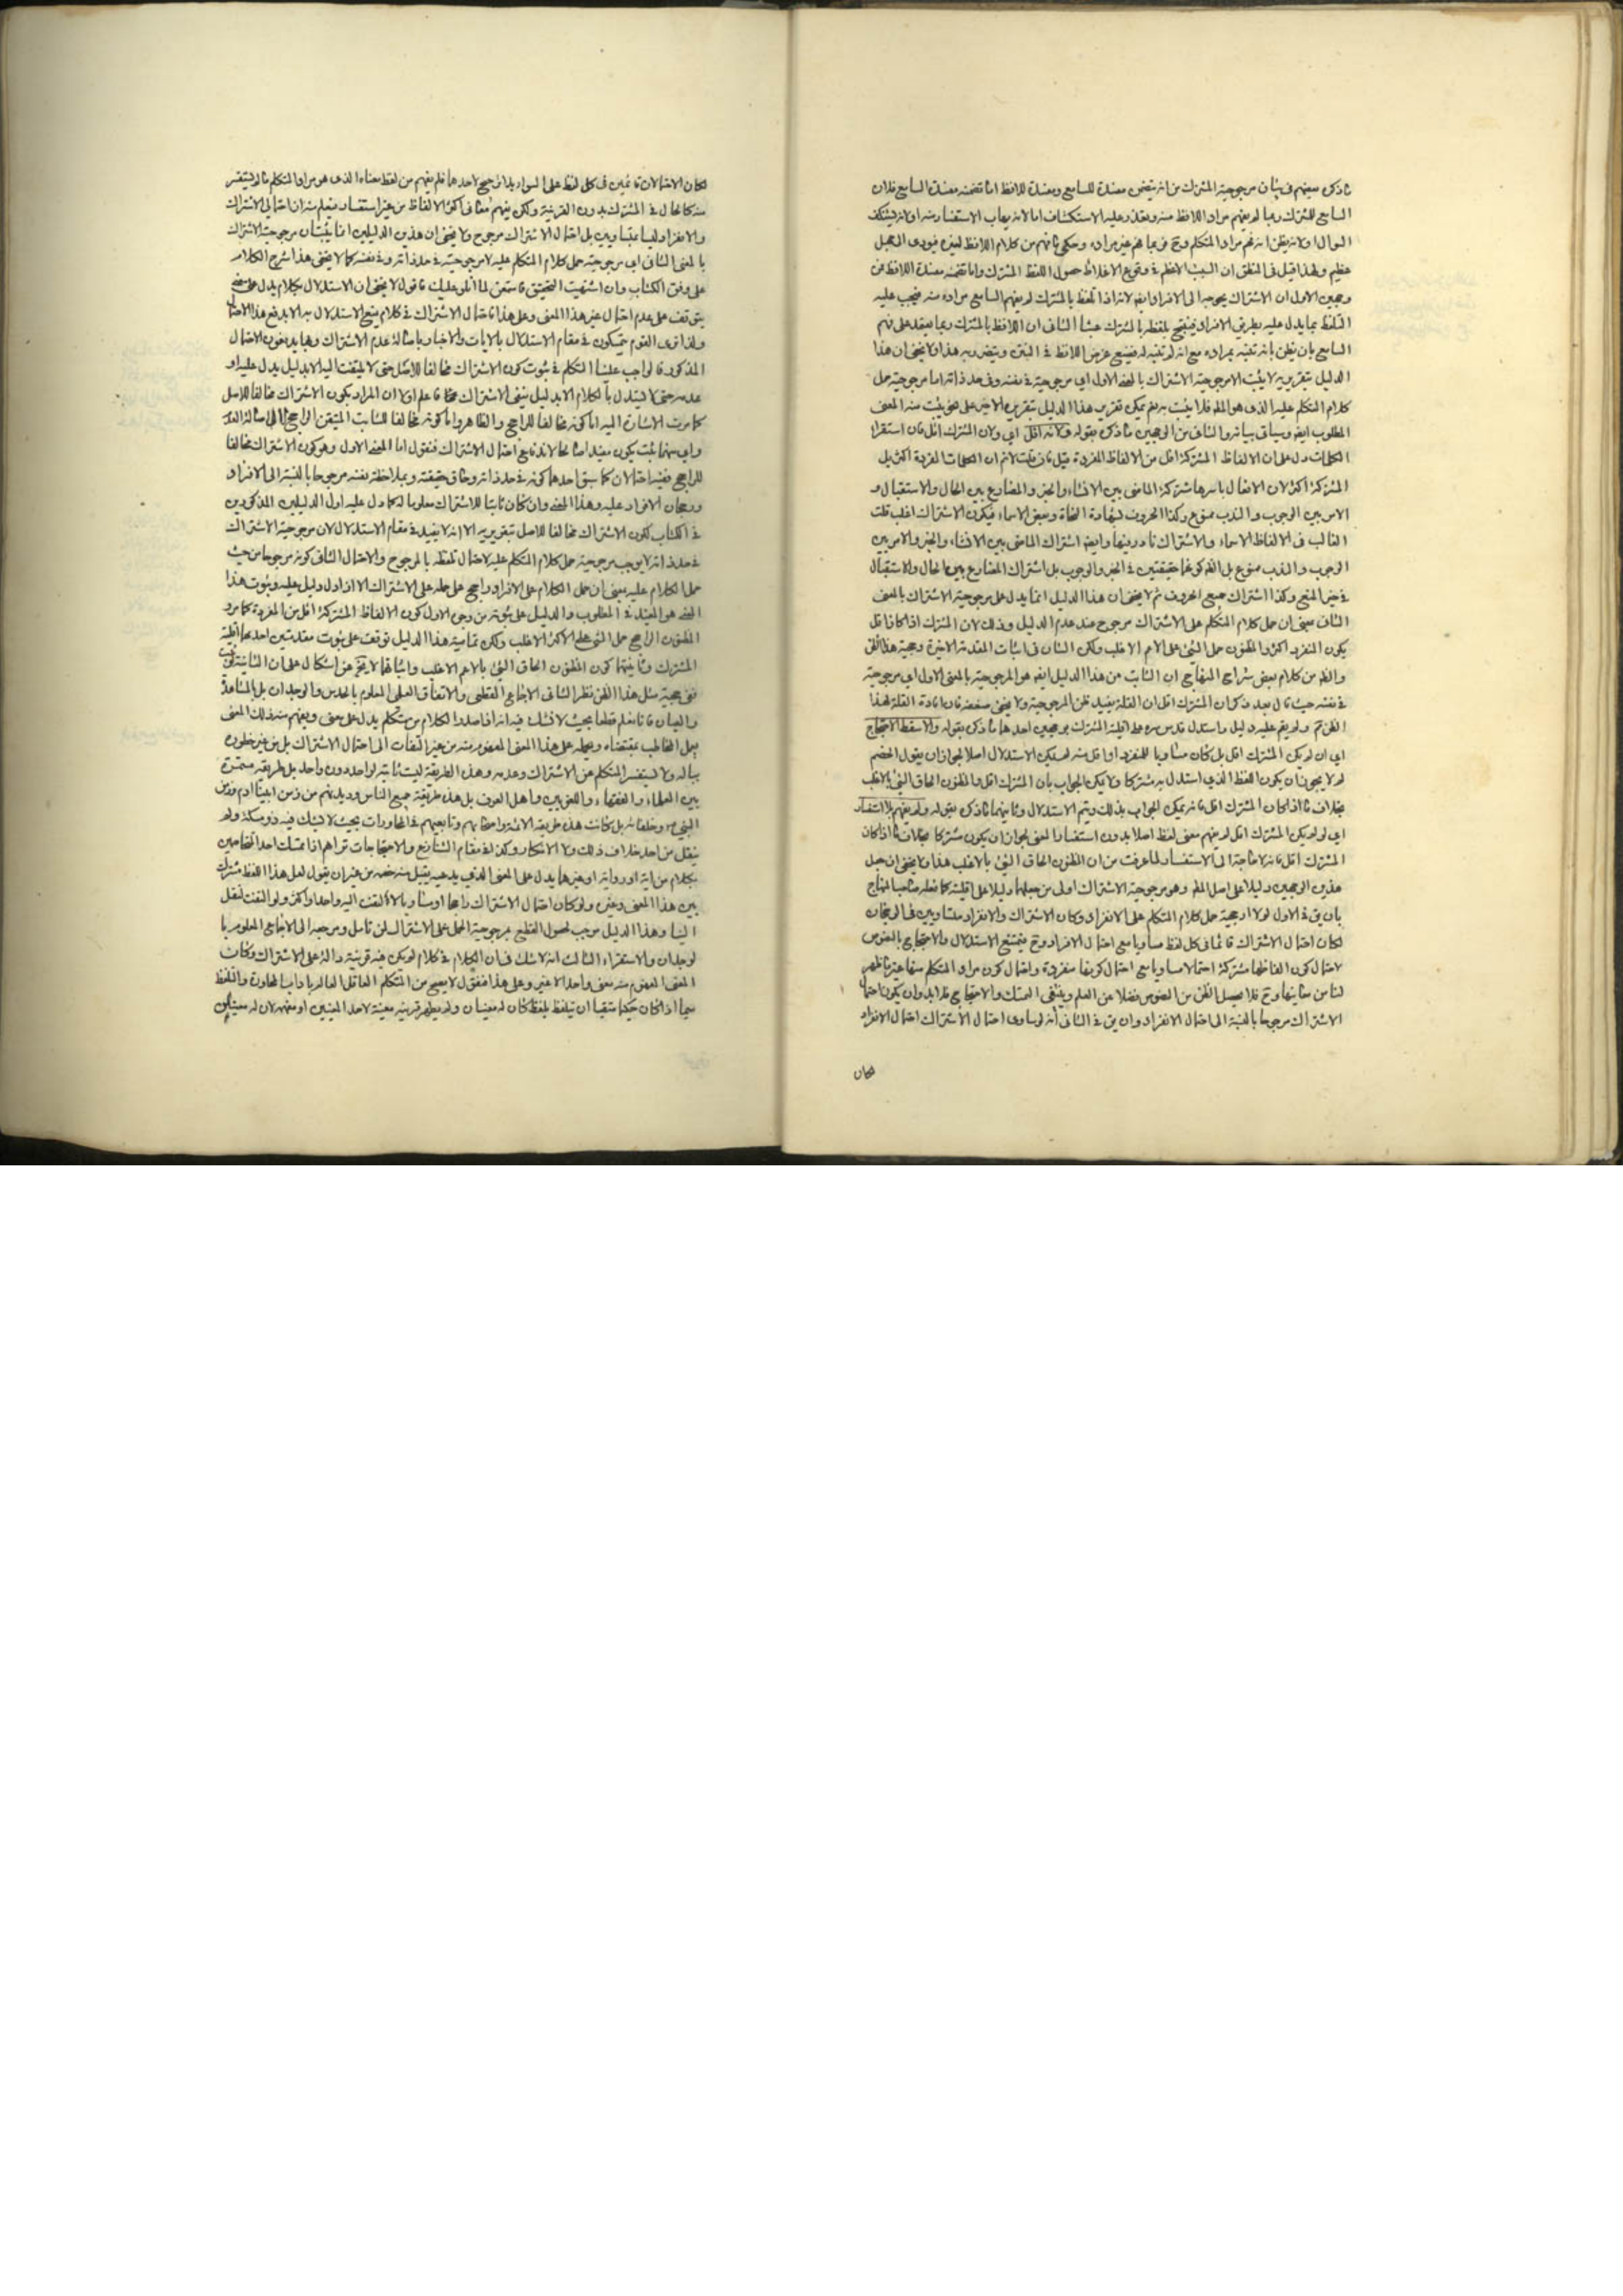 ما ذكره بعضهم في بيان مرجوحية المشترك من انه يتضمن مفسدة للسامع ومفسدة للافظ اما تضمنه مفسدة السامع فلان
السامع للمشترك ربما لم يفهم مراد اللافظ منه ويتعذر عليه الاستكشاف اما لانه يهاب الاستفسار منه او لانه يستنكف
السوال او لانه يظن انه فهم مراد المتكلم وح فربما فهم غير مراده وحكى ما فهم من كلام اللافظ لغيره فيودى الى جهل
عظيم ولهذا قيل في المنطق ان السبب الاعظم في وقوع الاغلاط حصول اللفظ المشترك واما تضمنه مفسدة اللافظ فمن
وجهين الاول ان الاشتراك يحوجه الى الافراد ايضا لانه اذا تلفظ بالمشترك لم يفهم السامع مراده منه فيجب عليه
التلفظ بما يدل عليه بطريق الافراد فيقع تلفظه بالمشترك عبثا الثاني ان اللافظ بالمشترك ربما يعتمد على فهم
السامع بان يظن بانه تنبه بمراده مع انه لم تنبه له فيضيع غرض اللافظ في البين ويتضرر به هذا ولا يخفى ان هذا
الدليل بتقريريه لا يثبت الا مرجوحية الاشتراك بالمعنى الاول اي مرجوحيته في نفسه وفي حد ذاته اما مرجوحية حمل
كلام المتكلم عليه الذي هو المط فلا يثبت به نعم يمكن تقرير هذا الدليل بتقريره الاخير على نحو يثبت منه المعنى
المطلوب ايضا وسياتي بيانه والثاني من الوجهين ما ذكره بقوله ولانه اقل اي ولان المشترك اقل فان استقراء
الكلمات دل على ان الالفاظ المشتركة اقل من الالفاظ المفردة قيل فان قلت لانم ان الكلمات المفردة اكثر بل
المشتركة اكثر لان الافعال باسرها مشتركة الماضي بين الانشاء والخبر والمضارع بين الحال والاستقبال و
الامر بين الوجوب والندب ممنوع وكذا الحروف بشهادة النحاة وبعض الاسماء فيكون الاشتراك اغلب قلت
الغالب في الالفاظ الاسماء والاشتراك نادر فيها وايضا اشتراك الماضي بين الانشاء والخبر والامر بين
الوجوب والندب ممنوع بل الظ كونهما حقيقتين في الخبر والوجوب بل اشتراك المضارع بين الحال والاستقبال
في حيز المنع وكذا اشتراك جميع الحروف ثم لا يخفى ان هذا الدليل انما يدل على مرجوحية الاشتراك بالمعنى
الثاني بمعنى ان حمل كلام المتكلم على الاشتراك مرجوح عند عدم الدليل وذلك لان المشترك اذا كان اقل
يكون المنفرد اكثر والمظنون حمل الشئ على الاعم الاغلب ولكن الشان في اثبات المقدمة الاخيرة وحجية هذا الظن
والظ من كلام بعض شراح المنهاج ان الثابت من هذا الدليل ايضا هو المرجوحية بالمعنى الاول اي مرجوحيته
في نفسه حيث قال بعد ذكر ان المشترك اقل ان القلة يفيد ظن المرجوحية ولا يخفى ضعفه فان افادة القلة لهذا
الظن ثم ولم يقم عليه دليل واستدل قدس سره على اقلية المشترك بوجهين احدهما ما ذكره بقوله والا سقط الاحتجاج
اي ان لم يكن المشترك اقل بل كان مساويا للمنفرد او اقل منه لم يمكن الاستدلال اصلا لجواز ان يقول الخصم
لم لا يجوز ان يكون اللفظ الذي استدل به مشتركا ولا يمكن الجواب بان المشترك اقل والمظنون الحاق الشئ بالاغلب
بخلاف ما اذا كان المشترك اقل فانه يمكن الجواب بذلك ويتم الاستدلال وثانيهما ما ذكره بقوله ولم يفهم بلا استفسار
اي لو لم يكن المشترك اقل لم يفهم معنى لفظ اصلا بدون استفسار المعنى لجواز ان يكون مشتركا بخلاف ما اذا كان
المشترك اقل فانه لا حاجة الى الاستفسار لما عرفت من ان المظنون الحاق الشئ بالاغلب هذا ولا يخفى ان جعل
هذين الوجهين دليلا على اصل المط وهو مرجوحية الاشتراك اولى من جعلهما دليلا على اقليته كما فعله صاحب المنهاج
بان يق في الاول لولا ارجحية حمل كلام المتكلم على الانفراد وكان الاشتراك والانفراد متساويين في الرجحان
لكان احتمال الاشتراك قائما في كل لفظ مساويا مع احتمال الافراد وح فيمتنع الاستدلال والاحتجاج بالنصوص
لاحتمال كون الفاظها مشتركة احتمالا مساويا مع احتمال كونها منفردة واحتمال كون مراد المتكلم منها غير ما ظهر
لنا من معانيها وح فلا يحصل الظن من النصوص فضلا عن العلم وينتفي التمسك والاحتجاج فلا بد وان يكون احتمال
الاشتراك مرجوحا بالنسبة الى احتمال الانفراد وان يق في الثاني انه لو ساوى احتمال الاشتراك احتمال الانفراد
لكان
لكان الاحتمالان قائمين في كل لفظ على السواء بلا ترجيح لاحدهما فلم يفهم من لفظ معناه الذي هو مراد المتكلم ما لم يستفسر
منه كالحال في المشترك بدون القرينة ولكن يفهم معاني اكثر الالفاظ من غير استفسار فيعلم منه ان احتمالي الاشتراك
والانفراد ليسا متساويين بل احتمال الاشتراك مرجوح ولا يخفى ان هذين الدليلين انما يثبتان مرجوحية الاشتراك
بالمعنى الثاني اي مرجوحية حمل كلام المتكلم عليه لا مرجوحيته في حد ذاته وفي نفسه كما لا يخفى هذا شرح الكلام
على وفق الكتاب وان اشتهيت التحقيق فاستمعن لما اتلو عليك فاقول لا يخفى ان الاستدلال بكلام يدل على معنى
يتوقف على عدم احتمال غير هذا المعنى وعلى هذا فاحتمال الاشتراك في كلام يمنع الاستدلال به الا بدفع هذا الاحتمال
ولذا ترى القوم يتمسكون في مقام الاستدلال بالايات والاخبار باصالة عدم الاشتراك وبها يدفعون الاحتمال
المذكور فالواجب علينا التكلم في ثبوت كون الاشتراك مخالفا للاصل حتى لا يلتفت اليه الا بدليل يدل عليه او
عدمه حتى لا يستدل بالكلام الا بدليل ينفي الاشتراك هذا فاعلم اولا ان المراد بكون الاشتراك مخالفا للاصل
كما مرت الاشارة اليه اما كونه مخالفا للراجح والظاهر واما كونه مخالفا للثابت المتيقن الراجح الى اصالة العدم
واي منهما يثبت يكون مفيدا صالحا لاندفاع احتمال الاشتراك فنقول اما المعنى الاول وهو كون الاشتراك مخالفا
للراجح ففيه احتمالان كما سبق احدهما كونه في حد ذاته وحاق حقيقته وبملاحظة نفسه مرجوحا بالنسبة الى الافراد
ورجحان الافراد عليه وهذا المعنى وان كان ثابتا للاشتراك معلوما له كما دل عليه اول الدليلين المذكورين
في الكتاب لكون الاشتراك مخالفا للاصل بتقريريه الا انه لا يفيد في مقام الاستدلال لان مرجوحية الاشتراك
في حد ذاته لا يوجب مرجوحية حمل كلام المتكلم عليه لاحتمال تلفظه بالمرجوح والاحتمال الثاني كونه مرجوحا من حيث
حمل الكلام عليه بمعنى ان حمل الكلام على الافراد راجح على حمله على الاشتراك الا اذا دل دليل عليه وثبوت هذا
المعنى هو المفيد في المطلوب والدليل على ثبوته من وجوه الاول كون الالفاظ المشتركة اقل من المفردة كما مر و
المظنون الراجح حمل الشئ على الاكثر الاغلب ولكن تمامية هذا الدليل توقف على ثبوت مقدمتين احدهما اقلية
المشترك وثانيهما كون المظنون الحاق الشئ بالاعم الاغلب واثباتهما لا يخ عن اشكال على ان الثانية لو تمت
ففي حجية مثل هذا الظن نظر الثاني الاجماع القطعي والاتفاق العملي المعلوم بالحدس والوجدان بل بالمشاهدة
والعيان فانا نعلم قطعا بحيث لا نشك فيه انه اذا صدر الكلام من متكلم يدل على معنى ويفهم منه ذلك المعنى
يعمل المخاطب بمقتضاه ويحمله على هذا المعنى المفهوم منه من غير التفات الى احتمال الاشتراك بل من غير خطوره
بباله ولا يستفسر المتكلم عن الاشتراك وعدمه وهذه الطريقة ليست ثابتة لواحد دون واحد بل طريقة مستمرة
بين العلماء والفقهاء واللغويين واهل العرف بل هذه طريقة جميع الناس وديدنهم من زمن ابينا ادم وزمن
النبي ص وخلفائه بل كانت هذه طريقة الائمة واصحابهم وتابعيهم في المحاورات بحيث لا يشك فيه ذو مسكة ولم
ينقل من احد خلاف ذلك ولا الانكار وكذا في مقام التنازع والاحتجاجات تراهم اذا تمسك احد المتخاصمين
بكلام من اية او رواية او غيرهما يدل على المعنى الذي يدعيه يقبل منه خصمه من غير ان يقول لعل هذا اللفظ مشترك
بين هذا المعنى وغيره ولو كان احتمال الاشتراك راجحا او مساويا لالتفت اليه واحد او اكثر ولو التفت لنقل
الينا وهذا الدليل موجب لحصول القطع بمرجوحية الحمل على الاشتراك لمن تامل ومرجعه الى الاجماعي المعلوم با
لوجدان والاستقراء الثالث انه لا شك في ان الكلام في كلام لم يكن فيه قرينة دالة على الاشتراك وكان
المعنى المفهوم منه معنى واحدا لا غير وعلى هذا فنقول لا يصح من المتكلم العاقل العالم باداب المحاورة والتلفظ
سيما اذا كان حكيما متقيا ان يتلفظ بلفظ كان له معنيان ولم يظهر قرينة معينة لاحد المعنيين او مفهمة لان له معنيين